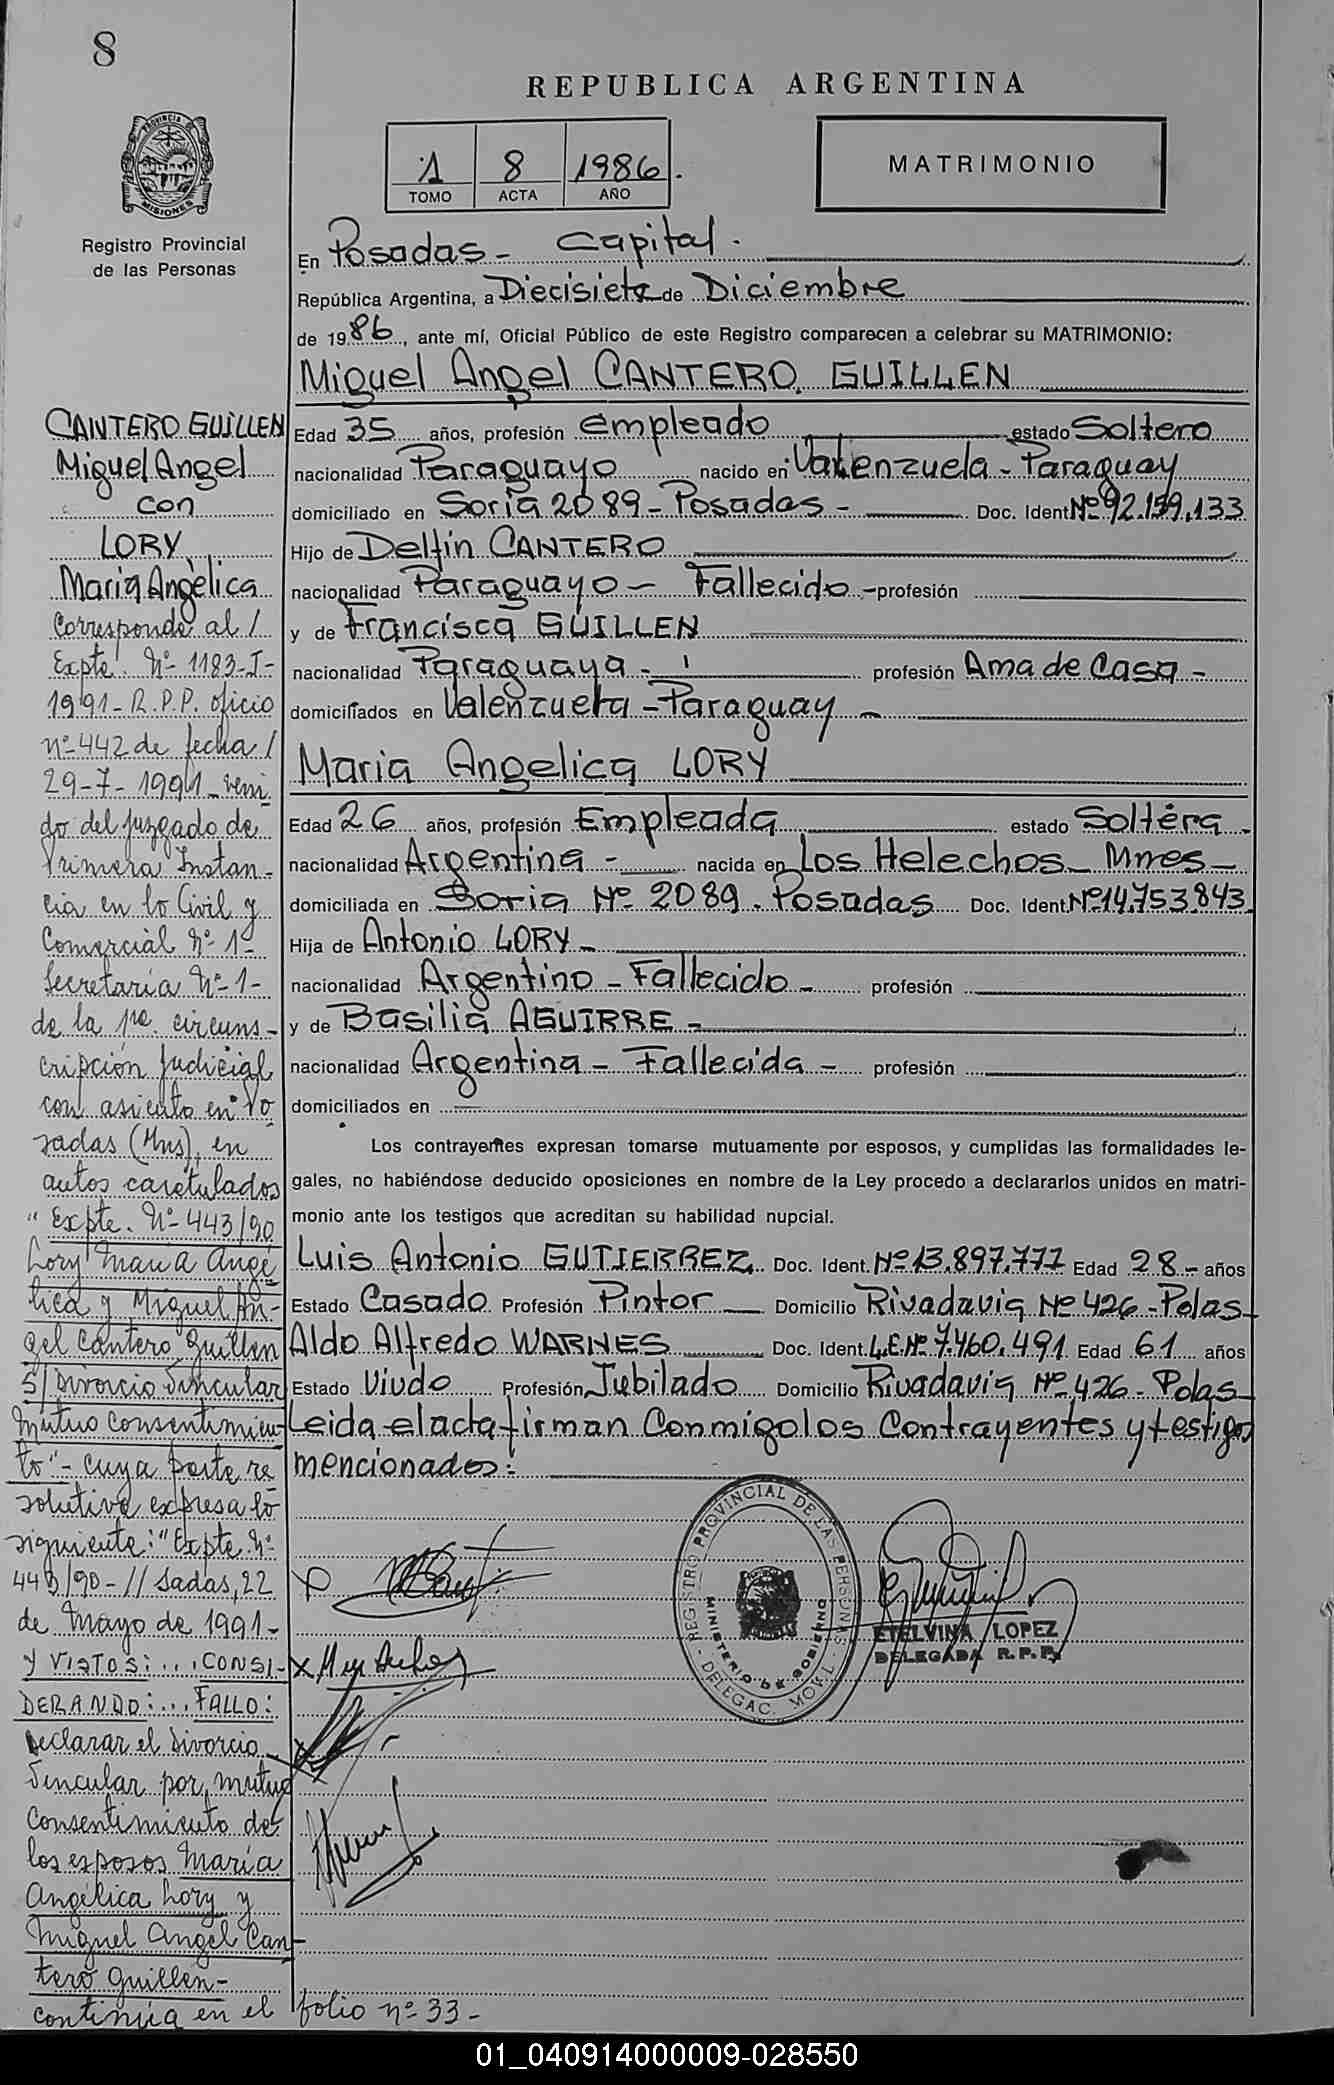 8
REPUBLICA ARGENTINA
PROVINCIA DE
MISIONES
Registro Provincial
de las Personas
1 8 1986.
TOMO ACTA AÑO
MATRIMONIO
En Posadas - Capital.
República Argentina, a Diecisiete de Diciembre
de 1986, ante mí, Oficial Público de este Registro comparecen a celebrar su MATRIMONIO:
Miguel Angel CANTERO GUILLEN
Edad 35 años, profesión empleado estado Soltero
nacionalidad Paraguayo nacido en Valenzuela - Paraguay
domiciliado en Soria 2089 - Posadas - Doc. Ident. Nº 92.159.133
Hijo de Delfin CANTERO
nacionalidad Paraguayo - Fallecido - profesión
y de Francisca GUILLEN
nacionalidad Paraguaya - profesión Ama de Casa -
domiciliados en Valenzuela - Paraguay -
Maria Angelica LORY
Edad 26 años, profesión Empleada estado Soltera -
nacionalidad Argentina - nacida en Los Helechos - Mnes -
domiciliada en Soria Nº 2089 - Posadas Doc. Ident. Nº 14.753.843
Hija de Antonio LORY -
nacionalidad Argentino - Fallecido - profesión
y de Basilia AGUIRRE -
nacionalidad Argentina - Fallecida - profesión
domiciliados en
Los contrayentes expresan tomarse mutuamente por esposos, y cumplidas las formalidades le-
gales, no habiéndose deducido oposiciones en nombre de la Ley procedo a declararlos unidos en matri-
monio ante los testigos que acreditan su habilidad nupcial.
Luis Antonio GUTIERREZ Doc. Ident. Nº 13.897.777 Edad 28 - años
Estado Casado Profesión Pintor Domicilio Rivadavia Nº 426 - Pdas
Aldo Alfredo WARNES Doc. Ident. L.E.Nº 7.460.491 Edad 61 años
Estado Viudo Profesión Jubilado Domicilio Rivadavia Nº 426 - Pdas
Leida el acta firman Conmigo los Contrayentes y testigos
mencionados:
REGISTRO PROVINCIAL DE LAS PERSONAS
MINISTERIO DE GOBIERNO
DELEGAC. MOVIL
ETELVINA LOPEZ
DELEGADA R.P.P.
CANTERO GUILLEN
Miguel Angel
con
LORY
Maria Angèlica
Corresponde al /
Expte. Nº 1183-I-
1991 - R.P.P. oficio
nº 442 de fecha /
29-7-1991 - veni
do del juzgado de
Primera Instan-
cia en lo Civil y
Comercial Nº 1-
Secretaría Nº 1-
de la 1ra. circuns-
cripción Judicial
con asiento en Po
sadas (Mns), en
autos caratulados
" Expte. Nº 443/90
Lory María Angé
lica y Miguel An-
gel Cantero Guillen
S/ Divorcio Vincular
Mutuo Consentimien-
to" - cuya parte re
solutiva expresa lo
siguiente: "Expte. Nº
443/90 - // Sadas, 22
de Mayo de 1991 -
Y VISTOS: ... CONSI-
DERANDO: ... FALLO:
Declarar el Divorcio
Vincular por mutuo
Consentimiento de
los esposos María
Angélica Lory y
Miguel Angel Can-
tero Guillen -
continúa en el folio nº 33 -
01_040914000009-028550